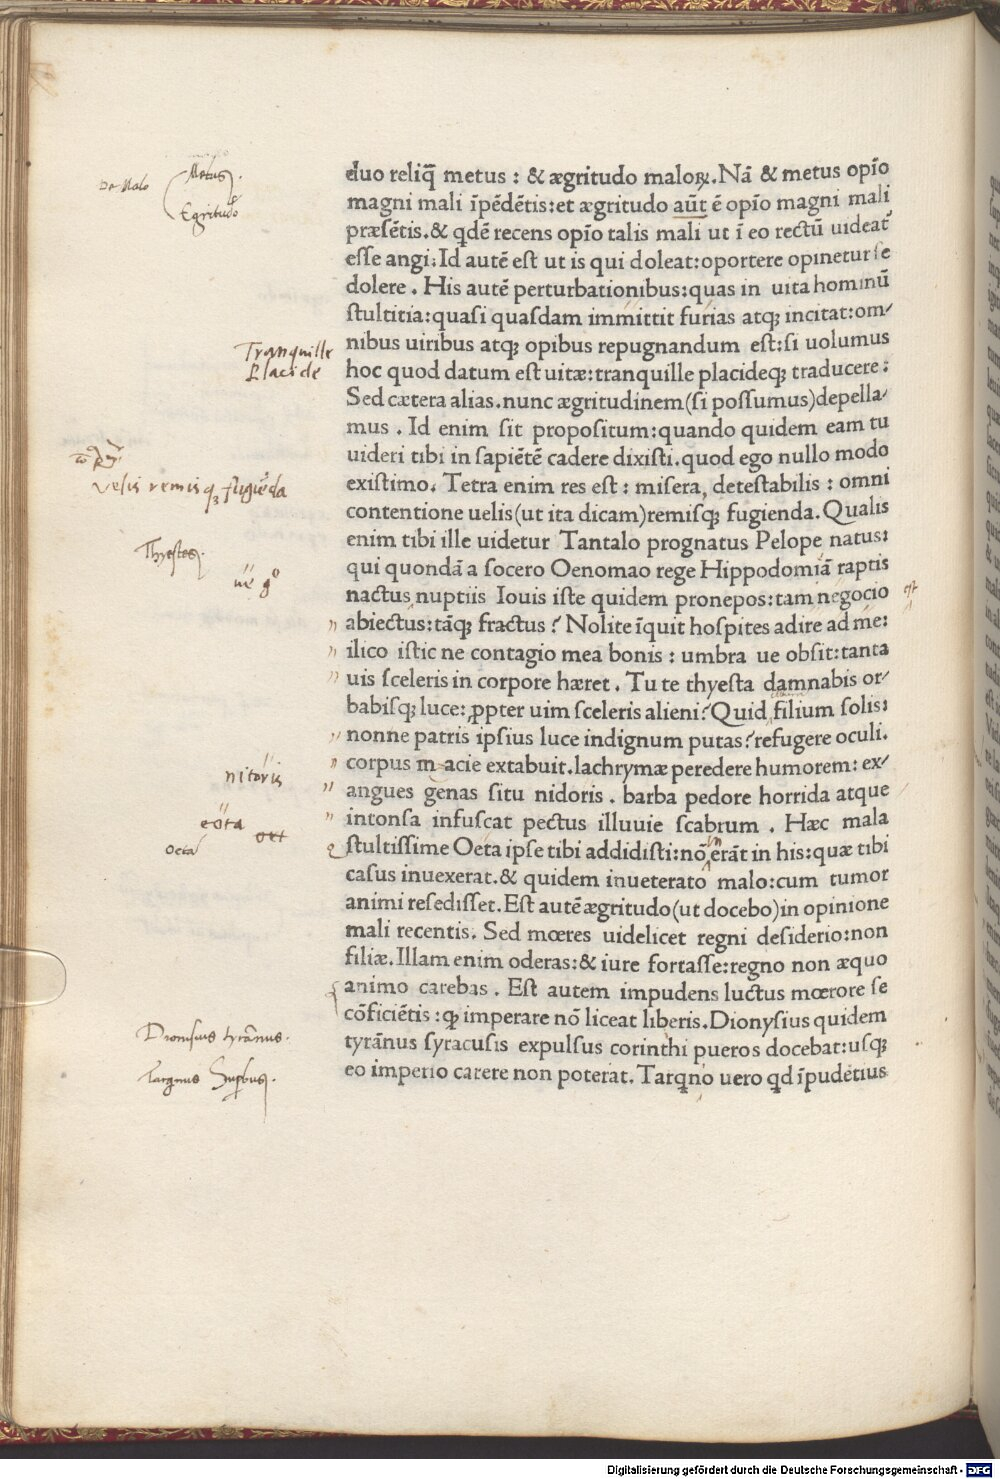 De Malo
Metus.
Egritudo
Tranquille
Placide
velis remisq; fugiēda
Thyestes.
nitoris
eota
oct
Oeta
Dionisius tyrānus.
Tarqnius Supbus.
duo reliq̄ metus : & ægritudo maloꝝ. Nā & metus opīo
magni mali īpēdētis:et ægritudo aūt ē opīo magni mali
præsētis.& qdē recens opīo talis mali ut ī eo rectū uideat᷑
esse angi. Id autē est ut is qui doleat:oportere opinetur se
dolere . His autē perturbationibus:quas in uita hominū
stultitia:quasi quasdam immittit furias atq; incitat:om-
nibus uiribus atq; opibus repugnandum est:si uolumus
hoc quod datum est uitæ:tranquille placideq; traducere :
Sed cætera alias.nunc ægritudinem(si possumus)depella-
mus . Id enim sit propositum:quando quidem eam tu
uideri tibi in sapiētē cadere dixisti.quod ego nullo modo
existimo. Tetra enim res est : misera, detestabilis : omni
contentione uelis(ut ita dicam)remisq; fugienda. Qualis
enim tibi ille uidetur Tantalo prognatus Pelope natus:
qui quondā a socero Oenomao rege Hippodomiā raptis
nactus nuptiis Iouis iste quidem pronepos:tam negocio
est
abiectus:tāq; fractus ? Nolite īquit hospites adire ad me:
ilico istic ne contagio mea bonis : umbra ue obsit:tanta
uis sceleris in corpore hæret . Tu te thyesta damnabis or-
babisq; luce: ꝓpter uim sceleris alieni? Quid filium solis:
nonne patris ipsius luce indignum putas? refugere oculi.
corpus macie extabuit.lachrymæ peredere humorem: ex-
angues genas situ nidoris . barba pedore horrida atque
intonsa infuscat pectus illuuie scabrum . Hæc mala
stultissime Oeta ipse tibi addidisti:nō erāt in his:quæ tibi
casus inuexerat.& quidem inueterato malo:cum tumor
animi resedisset. Est autē ægritudo(ut docebo)in opinione
mali recentis. Sed mœres uidelicet regni desiderio:non
filiæ. Illam enim oderas:& iure fortasse:regno non æquo
animo carebas . Est autem impudens luctus mœrore se
cōficiētis : ꝙ imperare nō liceat liberis. Dionysius quidem
tyrānus syracusis expulsus corinthi pueros docebat:usq;
eo imperio carere non poterat. Tarqno uero qd īpudētius
Digitalisierung gefördert durch die Deutsche Forschungsgemeinschaft - DFG